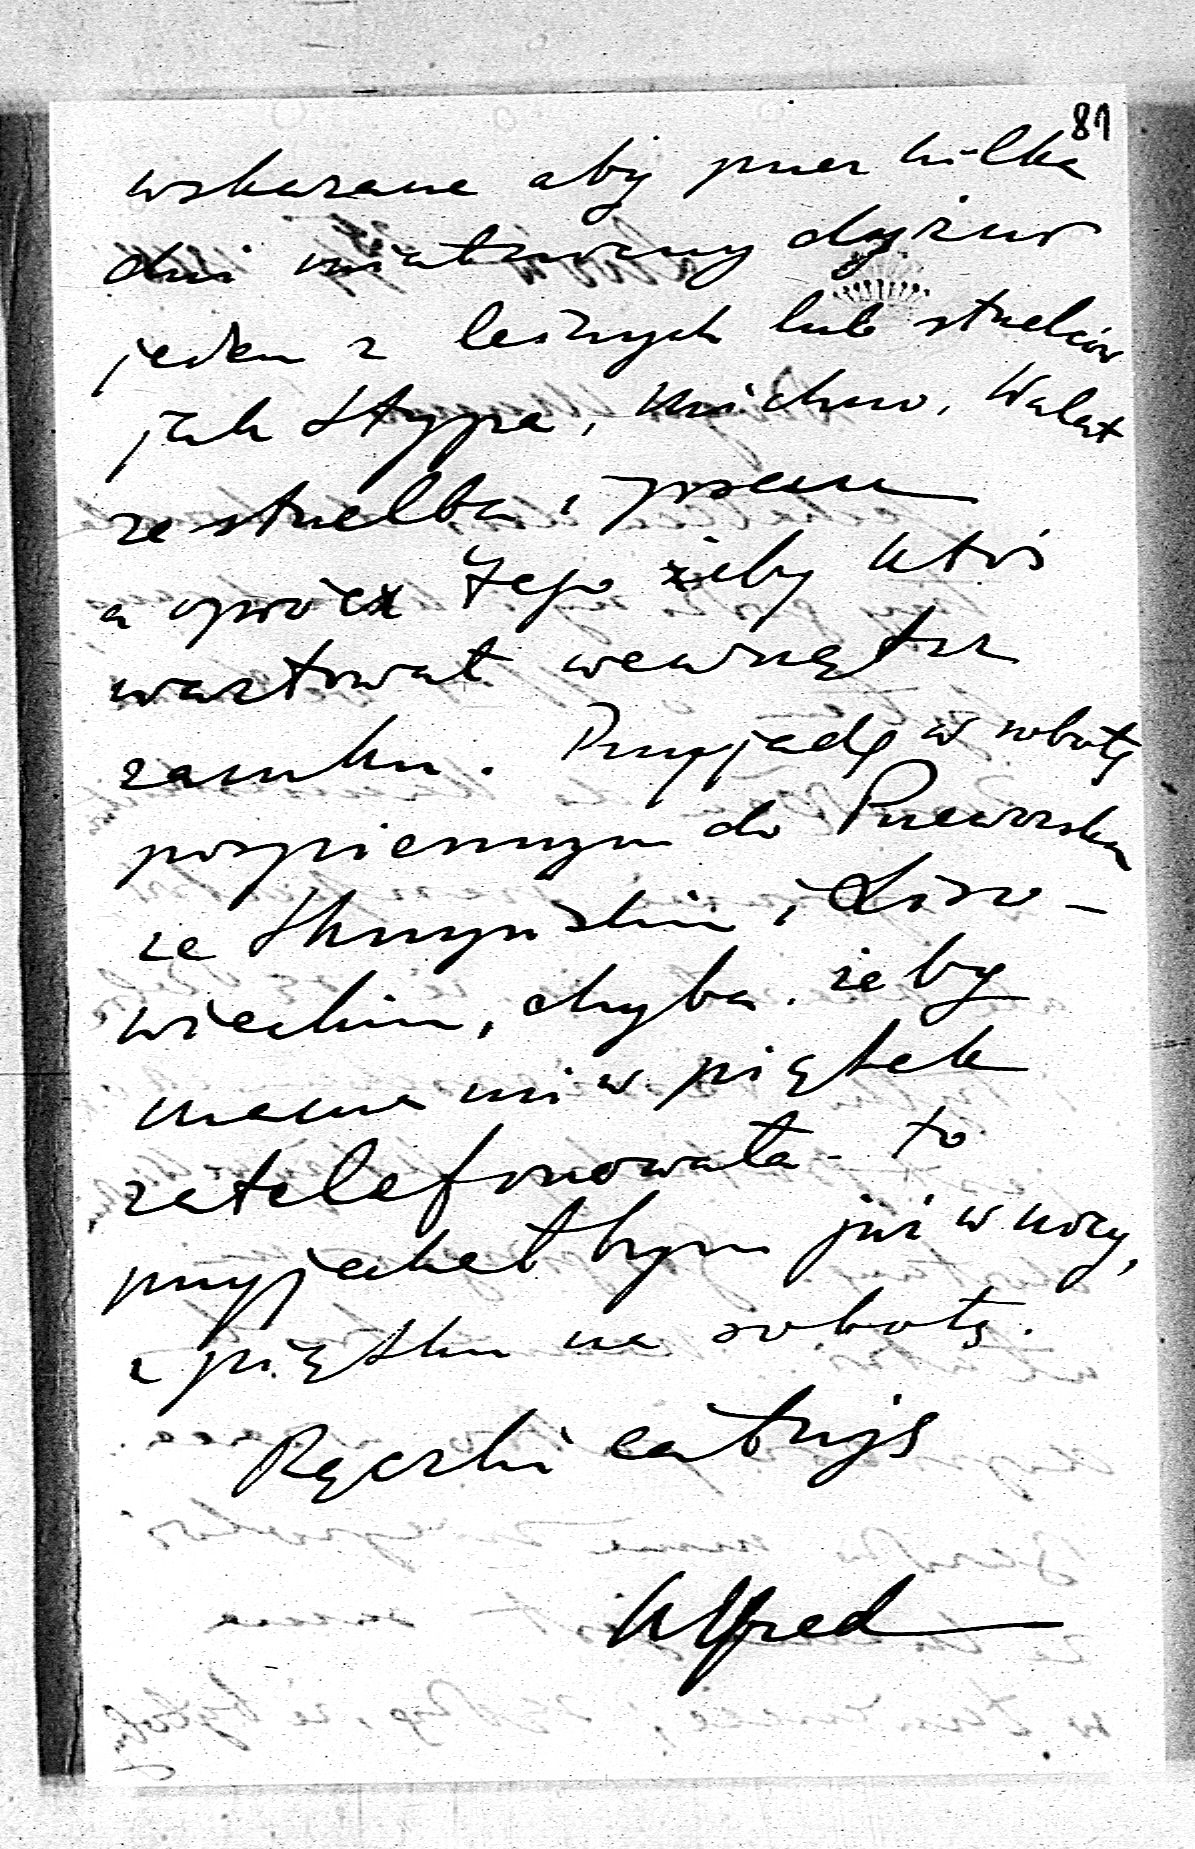 81
wskazane aby przez kilka
dni miał nocny dyżur
jeden z leśnych lub strzelców
jak Stypa, Kuichno, Walat
ze strzelbą i psem
a oprócz tego żeby ktoś
wartował wewnątrz
zamku. Przyjadę w sobotę
pospiesznym do Przeworska
ze Skrzyńskim i Liso-
wieckim, chyba żeby
mama mi w piątek
zatelefonowała - to
przyjechał bym już w nocy,
z piątku na sobotę.
Rączki całuję
Alfred